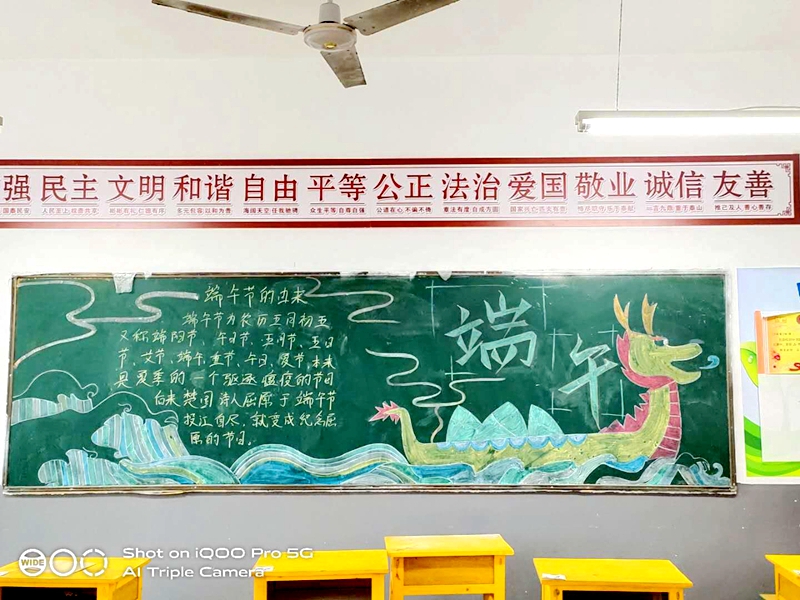 强 民主 文明 和谐 自由 平等 公正 法治 爱国 敬业 诚信 友善
端午节的由来
端午节为农历五月初五
又称端阳节、午日节、五月节、五日
节、艾节、端午、重午、午日、夏节、本来
是夏季的一个驱逐瘟疫的节日
后来楚国诗人屈原于端午节
投江自尽,就变成纪念屈
原的节日。
端午
WIDE
Shot on iQOO Pro 5G
AI Triple Camera